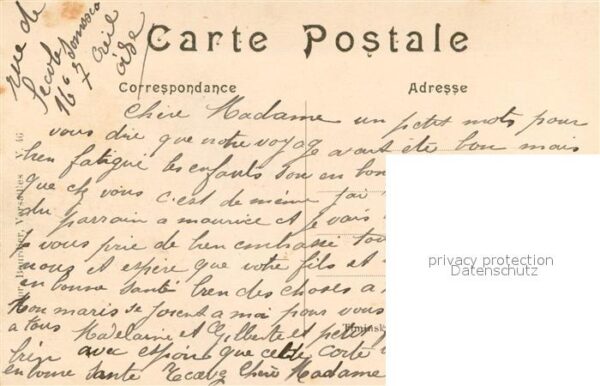 rue de
l'ecole
16
Creil
oise
Carte Postale
Correspondance
Adresse
Chère Madame un petit mots pour
vous dire que notre voyage avait été bon mais
bien fatigué les enfants son en bon
que chez vous c'est de même j'ai
du parrain a maurice et je vais
je vous prie de bien embrassé tou
nous et espère que votre fils et
en bonne santé bien des choses a
Mon maris se joient a moi pour vous
a tous Madelaine et Gilberte et petit
bien avec espoir que cette carte
en bonne sante Chère Madame
privacy protection
Datenschutz
Versailles